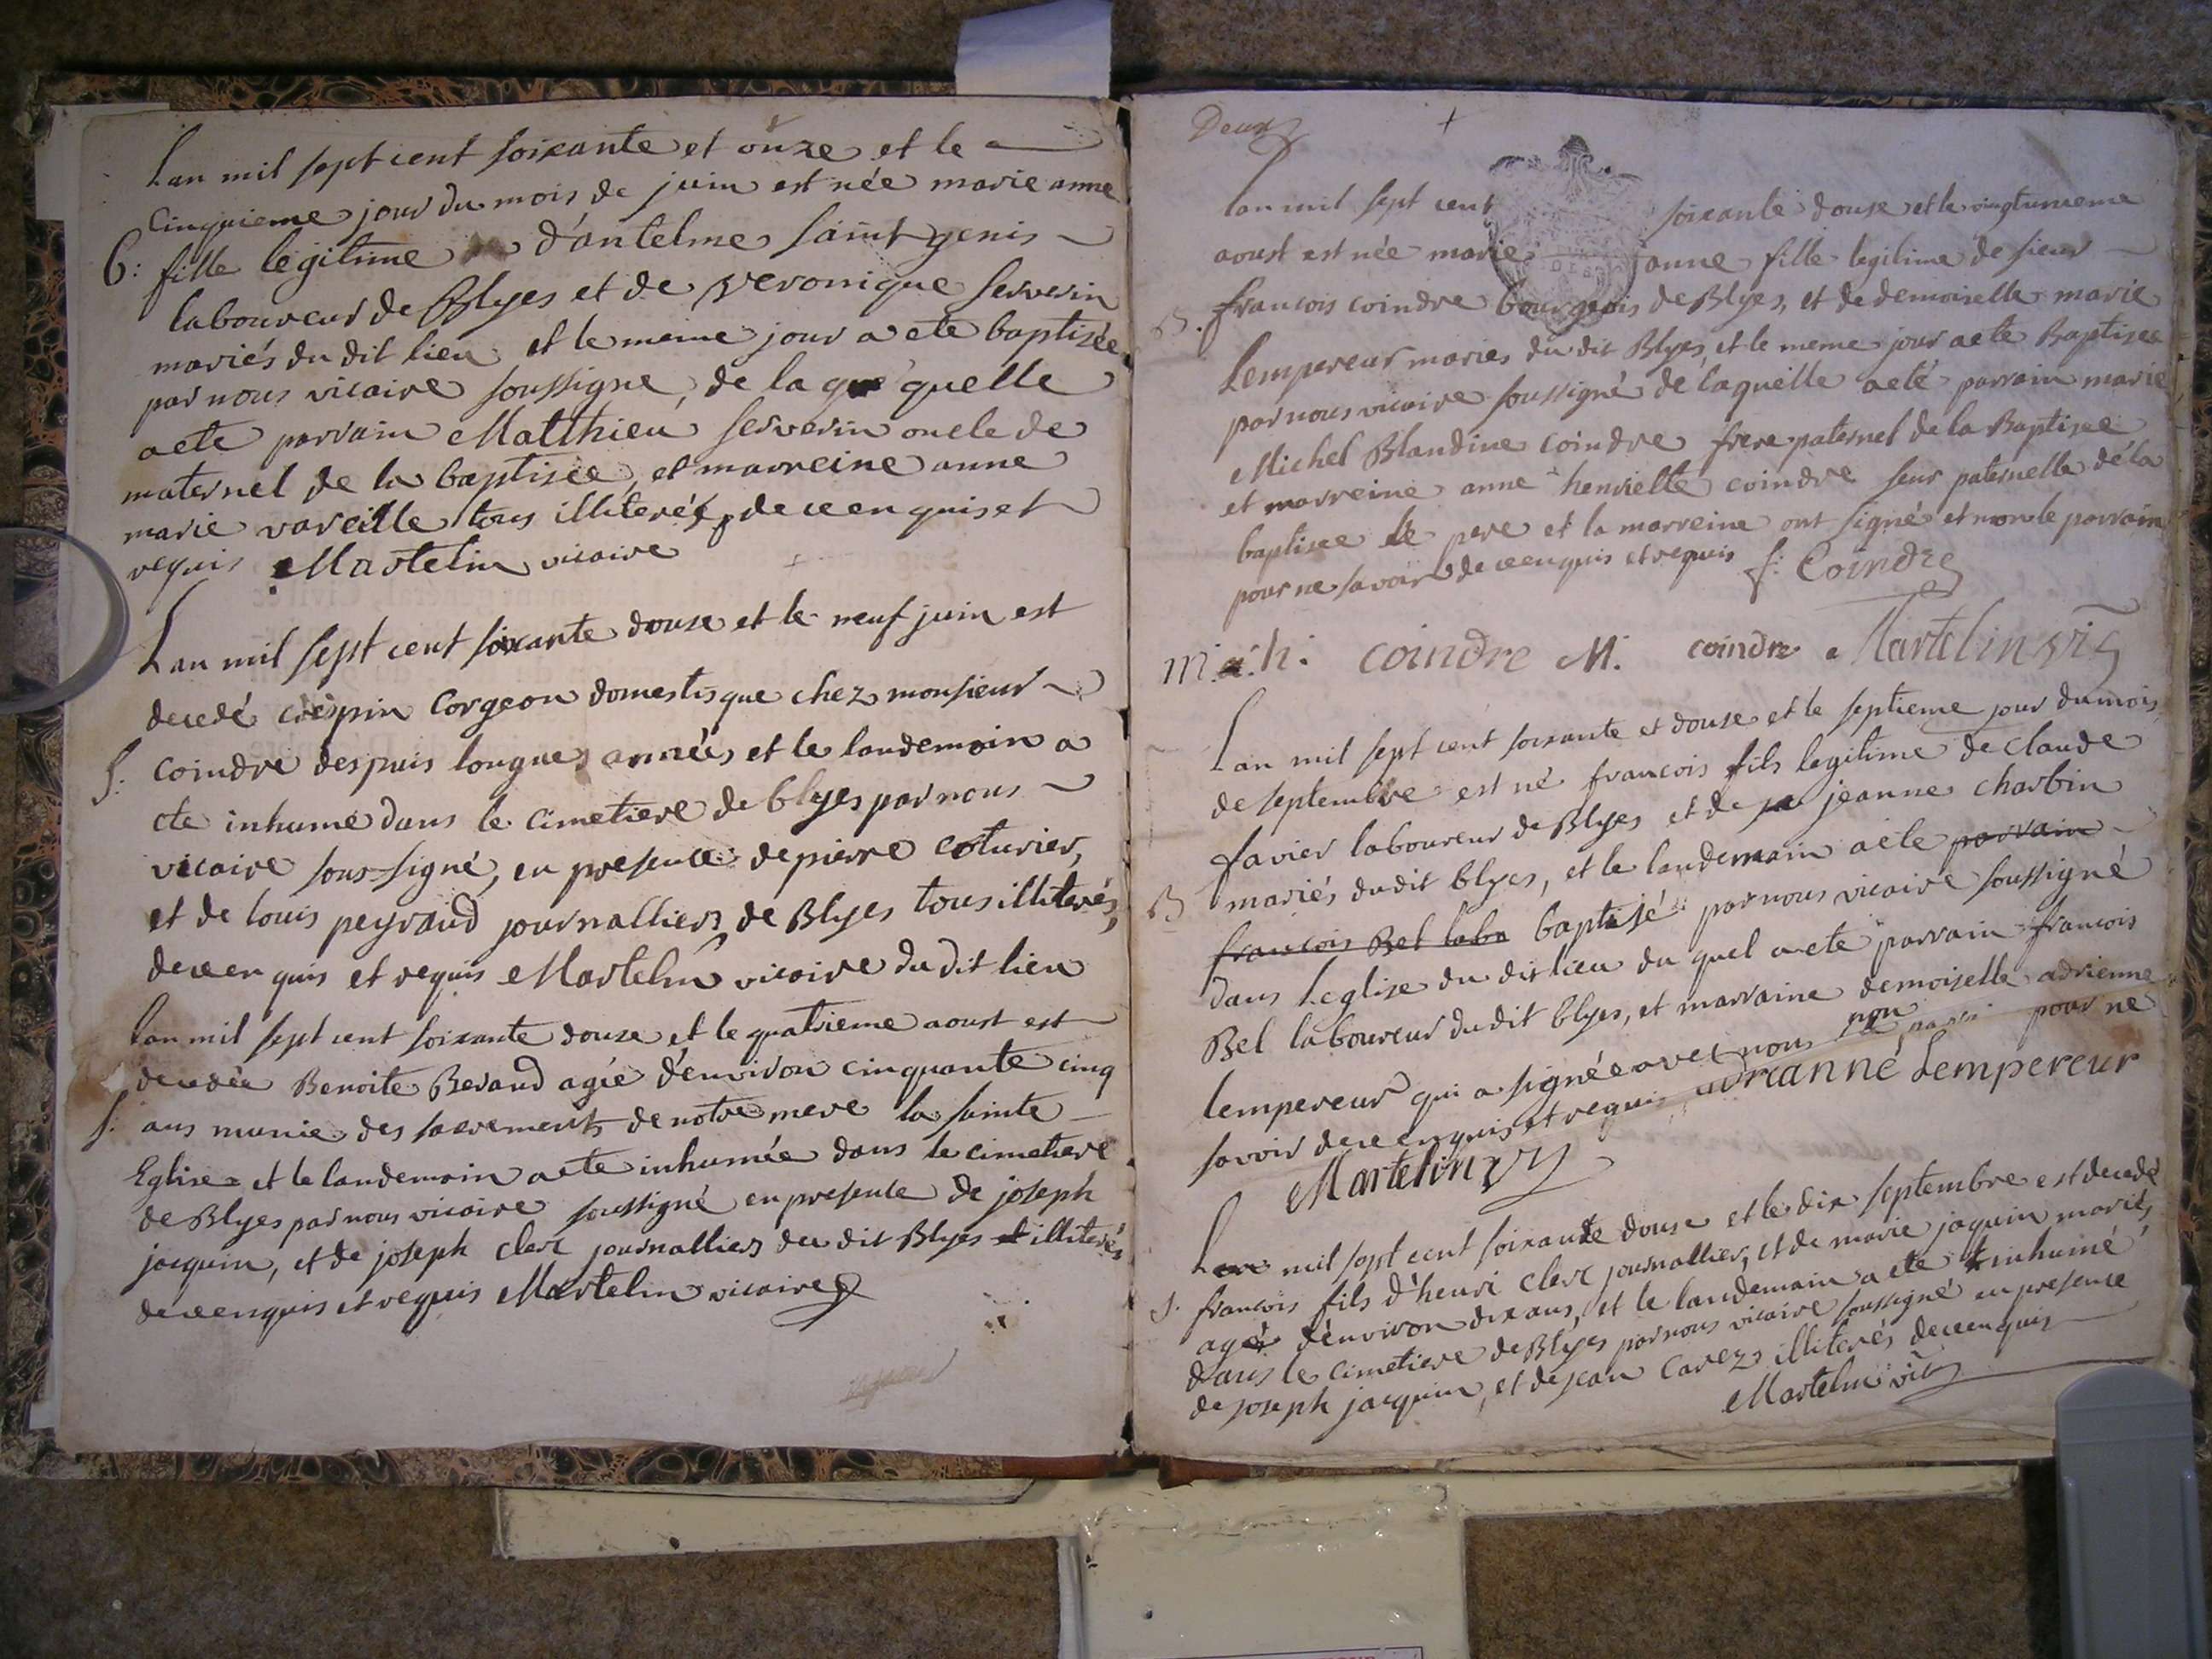 Lan mil sept cent soixante et onze et le
Cinquieme jour du mois de juin est née marie anne
B: fille legitime d'antelme saint genis
laboureur de Blyes et de veronique serverin
mariés du dit lieu et le meme jour a ete baptisée
par nous vicaire soussigné, de la quelle
a ete parrain Matthieu serverin oncle de
maternel de la baptisée, et marreine anne
marie vareille tous illiterés de ce enquis et
requis Martelin vicaire
Lan mil sept cent soixante douse et le neuf juin est
decedé crespin Corgeon domestisque chez monsieur
S: coindre despuis longues années et le landemain a
ete inhumé dans le cimetiere de blyes par nous
vicaire sous-signé, en presence de pierre coturier,
et de louis peyraud journalliers de Blyes tous illiterés,
de ce enquis et requis Martelin vicaire du dit lieu
Lan mil sept cent soixante douse et le quatrieme aoust est
decedée Benoite Beraud agée d'environ cinquante cinq
S. ans munie des sacrements de notre mere la sainte
Eglise et le landemain a ete inhumée dans le cimetiere
de Blyes par nous vicaire soussigné en presence de joseph
jacquin, et de joseph clerc journalliers du dit Blyes illiterés
de ce enquis et requis Martelin vicaire
Deux
Lan mil sept cent soixante douse et le vingtunieme
aoust est née marie anne fille legitime de sieur
B. francois coindre bourgeois de Blyes, et de demoiselle marie
Lempereur maries du dit Blyes, et le meme jour a ete Baptisée
par nous vicaire soussigné de laquelle a eté parrain marie
Michel Blandine coindre frere paternel de la Baptisee
et marreine anne henriette coindre seur paternelle de la
baptisee le pere et la marreine ont signé et non le parrain
pour ne savoir de ce enquis et requis f: Coindre
m. a. h. coindre M. coindre Martelin vic
Lan mil sept cent soixante et douse et le septieme jour du mois
de septembre est né francois fils legitime de claude
favier laboureur de Blyes et de jeanne charbin
B mariés du dit blyes, et le landemain a ete parrain
francois Bel labo baptisé par nous vicaire soussigné
dans l'eglise du dit lieu du quel a ete parrain francois
Bel laboureur du dit blyes, et marraine demoiselle adrienne
lempereur qui a signée avec nous non pour ne
savoir de ce enquis et requis adrianne Lempereur
Martelin vic
Lan mil sept cent soixante douse et le dix septembre est decedé
S. francois fils d'henri clerc journallier, et de marie jaquin mariés,
agé d'environ dix ans, et le landemain a ete inhumé
dans le cimetiere de Blyes par nous vicaire soussigné en presence
de joseph jacquin, et de jean Carez illiterés de ce enquis
Martelin vic